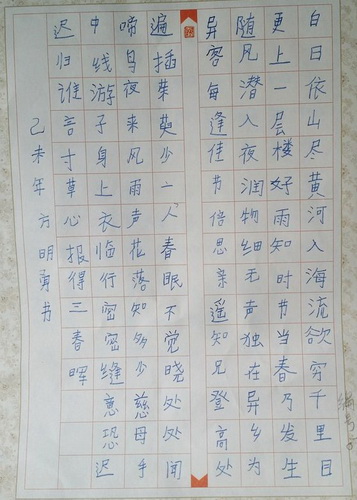 白日依山尽黄河入海流欲穷千里目
更上一层楼好雨知时节当春乃发生
随风潜入夜润物细无声独在异乡为
异客每逢佳节倍思亲遥知兄登高处
遍插茱萸少一人春眠不觉晓处处闻
啼鸟夜来风雨声花落知多少慈母手
中线游子身上衣临行密密缝意恐迟
迟归谁言寸草心报得三春晖
己未年方明勇书